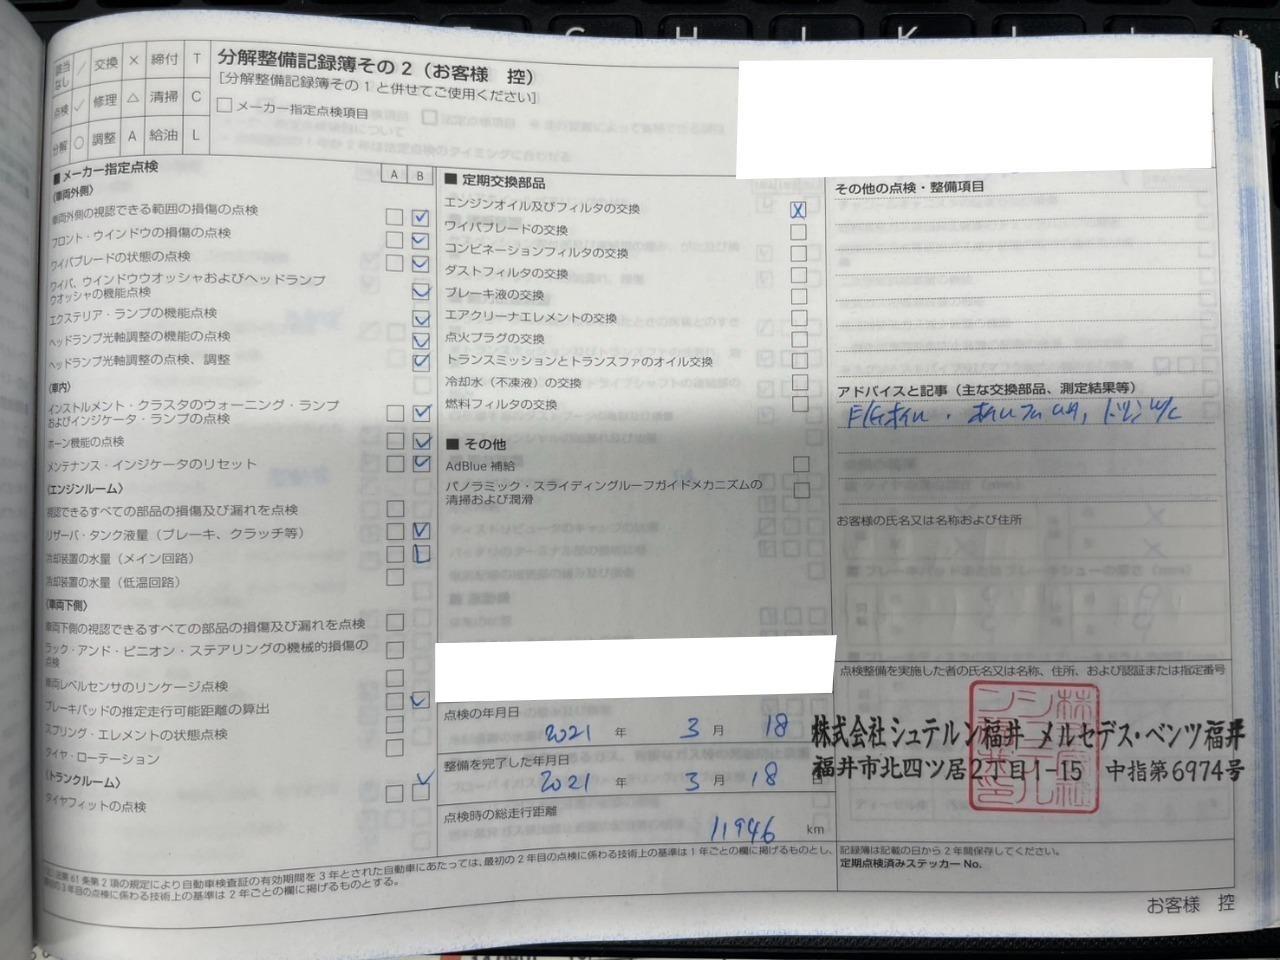 該当なし / 交換 × 締付 T
点検 ✓ 修理 △ 清掃 C
分解 ○ 調整 A 給油 L
分解整備記録簿その2（お客様　控）
[分解整備記録簿その1と併せてご使用ください]
メーカー指定点検項目
■ メーカー指定点検
A B
〈車両外側〉
車両外側の視認できる範囲の損傷の点検
フロント・ウインドウの損傷の点検
ワイパブレードの状態の点検
ワイパ、ウインドウウオッシャおよびヘッドランプ
ウオッシャの機能点検
エクステリア・ランプの機能点検
ヘッドランプ光軸調整の機能の点検
ヘッドランプ光軸調整の点検、調整
〈車内〉
インストルメント・クラスタのウォーニング・ランプ
およびインジケータ・ランプの点検
ホーン機能の点検
メンテナンス・インジケータのリセット
〈エンジンルーム〉
視認できるすべての部品の損傷及び漏れを点検
リザーバ・タンク液量（ブレーキ、クラッチ等）
冷却装置の水量（メイン回路）
冷却装置の水量（低温回路）
〈車両下側〉
車両下側の視認できるすべての部品の損傷及び漏れを点検
ラック・アンド・ピニオン・ステアリングの機械的損傷の
点検
車両レベルセンサのリンケージ点検
ブレーキパッドの推定走行可能距離の算出
スプリング・エレメントの状態点検
タイヤ・ローテーション
〈トランクルーム〉
タイヤフィットの点検
■ 定期交換部品
エンジンオイル及びフィルタの交換
ワイパブレードの交換
コンビネーションフィルタの交換
ダストフィルタの交換
ブレーキ液の交換
エアクリーナエレメントの交換
点火プラグの交換
トランスミッションとトランスファのオイル交換
冷却水（不凍液）の交換
燃料フィルタの交換
■ その他
AdBlue 補給
パノラミック・スライディングルーフガイドメカニズムの
清掃および潤滑
点検の年月日
2021 年 3 月 18
整備を完了した年月日
2021 年 3 月 18 日
点検時の総走行距離
11946 km
その他の点検・整備項目
アドバイスと記事（主な交換部品、測定結果等）
お客様の氏名又は名称および住所
点検整備を実施した者の氏名又は名称、住所、および認証または指定番号
株式会社シュテルン福井 メルセデス・ベンツ福井
福井市北四ツ居2丁目1-15　中指第6974号
記録簿は記載の日から2年間保存してください。
定期点検済みステッカー No.
法第61条第2項の規定により自動車検査証の有効期間を3年とされた自動車にあたっては、最初の2年目の点検に係わる技術上の基準は1年ごとの欄に掲げるものとし、
の3年目の点検に係わる技術上の基準は2年ごとの欄に掲げるものとする。
お客様　控